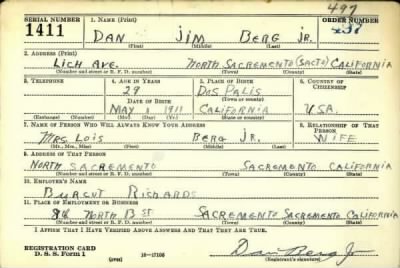 497
SERIAL NUMBER 1. NAME (Print) ORDER NUMBER
1411 DAN JIM BERG JR. 437
(First) (Middle) (Last)
2. ADDRESS (Print)
LICH AVE. NORTH SACREMENTO (SACTO) CALIFORNIA
(Number and street or R. F. D. number) (Town) (County) (State)
3. TELEPHONE 4. AGE IN YEARS 5. PLACE OF BIRTH 6. COUNTRY OF CITIZENSHIP
29 DOS PALIS
DATE OF BIRTH (Town or county)
MAY 1 1911 CALIFORNIA U.S.A.
(Exchange) (Number) (Mo.) (Day) (Yr.) (State or country)
7. NAME OF PERSON WHO WILL ALWAYS KNOW YOUR ADDRESS 8. RELATIONSHIP OF THAT PERSON
MRS. LOIS BERG JR. WIFE
(Mr., Mrs., Miss) (First) (Middle) (Last)
9. ADDRESS OF THAT PERSON
NORTH SACREMENTO SACREMENTO CALIFORNIA
(Number and street or R. F. D. number) (Town) (County) (State)
10. EMPLOYER'S NAME
RICHARDS
11. PLACE OF EMPLOYMENT OR BUSINESS
8th NORTH B ST SACREMENTO SACREMENTO CALIFORNIA
(Number and street or R. F. D. number) (Town) (County) (State)
I AFFIRM THAT I HAVE VERIFIED ABOVE ANSWERS AND THAT THEY ARE TRUE.
REGISTRATION CARD
D. S. S. Form 1 (over) 16-17105 Dan Berg Jr
(Registrant's signature)